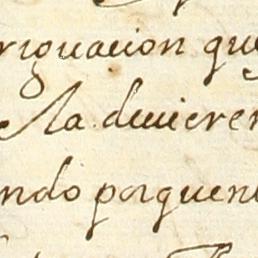 riguacion que
la. devieren
ndo porquen